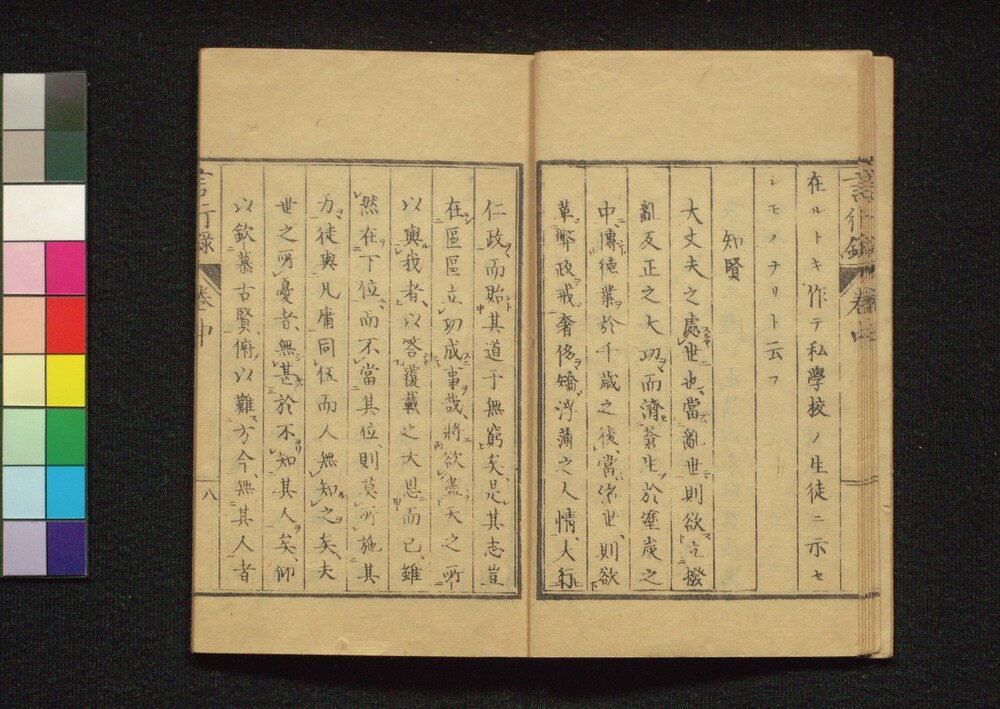 言行録 卷中
在ルトキ作テ私學校ノ生徒ニ示セ
シモノナリト云フ
知賢
大丈夫之處世也、當亂世則欲撥
亂反正之大功而濟蒼生於塗炭之
中傳德業於千歲之後、當治世、則欲
革弊政戒奢侈矯浮薄之人情、大行
仁政而貽其道于無窮矣、是其志豈
在區區立功成事哉、將欲盡天之所
以與我者、以答覆載之大恩而已、雖
然在下位而不當其位則莫所施其
方徒與凡庸同伍而人無知之矣、夫
世之所憂者、無甚於不知其人矣、仰
以欽慕古賢、俯以難方今無其人者
言行録 卷中 八